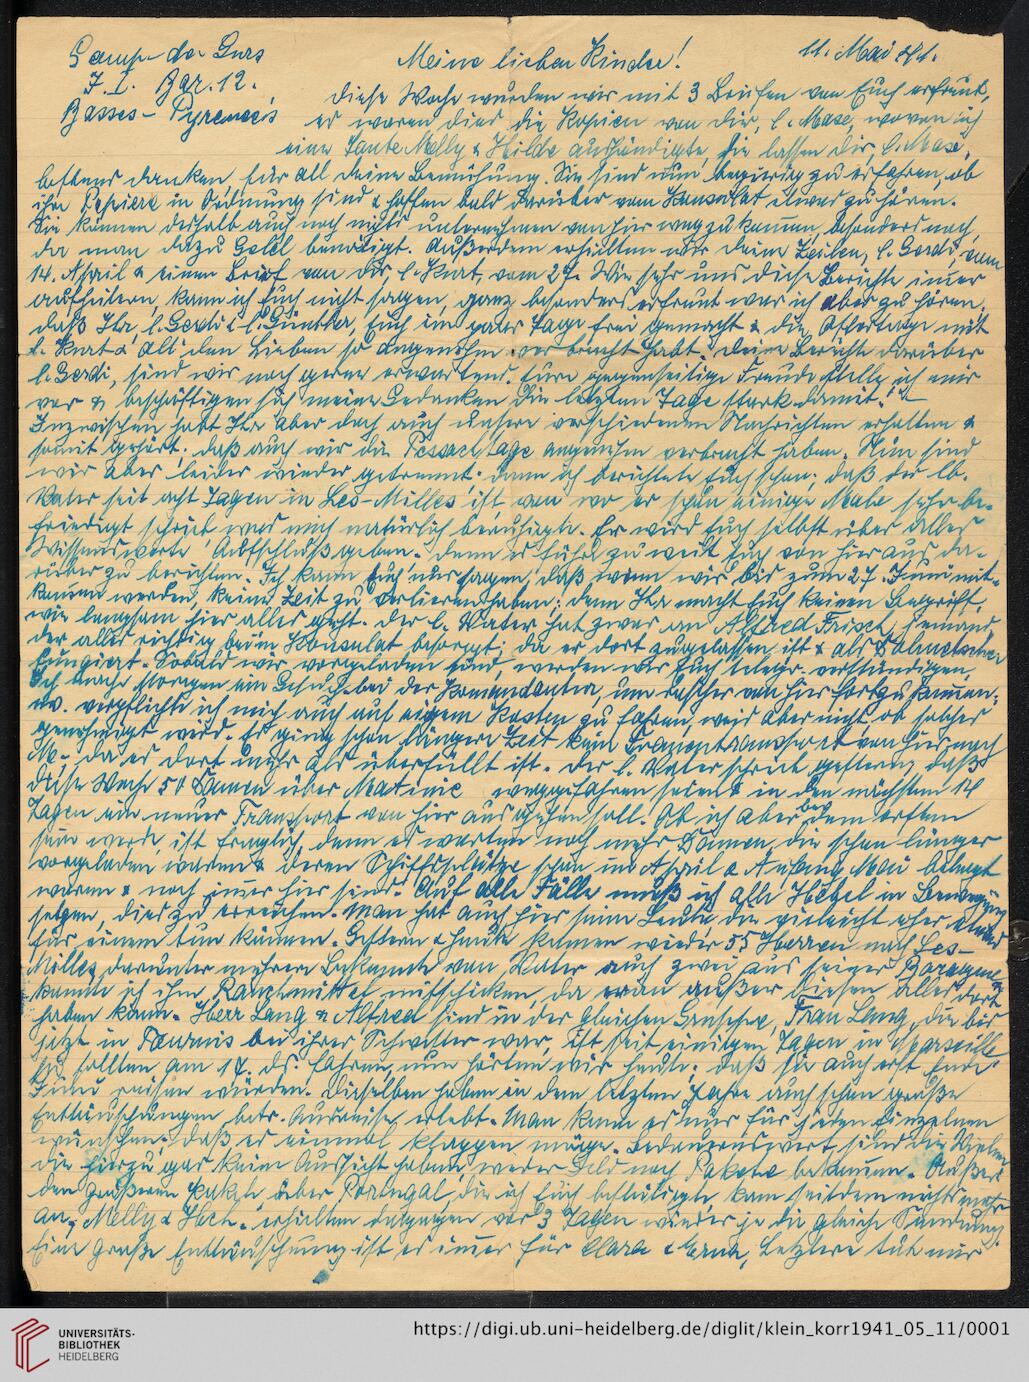 Camp de Gurs
J. I. Bar. 12.
Basses-Pyrenees
11. Mai 41.
Meine lieben Kinder!
Diese Woche wurden wir mit 3 Briefen von Euch erfreut,
es waren dies die Kopien von Dir, l. Mase, wovon ich
eine Tante Melly & Hilde aushändigte, sie lassen Dir, l. Mase,
bestens danken für all Deine Bemühung. Sie sind nun begierig zu erfahren, ob
ihre Papiere in Ordnung sind & hoffen bald darüber vom Konsulat etwas zu hören.
Sie können deshalb auch noch nichts unternehmen von hier weg zu kommen, besonders noch,
da man dazu Geld benötigt. Außerdem erhielten wir Deine Zeilen, l. Gerdi, vom
14. April & einen Brief von Dir, l. Kurt, vom 27. Wie sehr uns diese Berichte immer
aufheitern, kann ich Euch nicht sagen, ganz besonders erfreut war ich aber zu hören,
daß Ihr, l. Gerdi & l. Günther, Euch ein paar Tage frei gemacht & die Ostertage mit
l. Kurt & all den Lieben so angenehm verbracht habt. Deine Berichte darüber
l. Gerdi, sind wir noch gerne erwartend. Eure gegenseitige Freude stelle ich mir
vor & beschäftigen sich meine Gedanken die letzten Tage stark damit.
Inzwischen habt Ihr aber doch auch unsere verschiedenen Nachrichten erhalten &
somit gehört, daß auch wir die Pessachtage angenehm verbracht haben. Nun sind
wir aber leider wieder getrennt, denn ich berichtete Euch schon, daß der lb.
Vater seit acht Tagen in Les-Milles ist von wo er schon einige Male sehr be-
friedigt schrieb was mich natürlich beruhigte. Er wird Euch selbst über alles
Wissenswerte Aufschluß geben. Denn es führt zu weit Euch von hier aus da-
rüber zu berichten. Ich kann Euch nur sagen, daß wenn wir bis zum 27. Juni mit-
kommen werden, keine Zeit zu verlieren haben; denn Ihr macht Euch keinen Begriff,
wie langsam hier alles geht. Der l. Vater hat zwar an Alfred Frisch, jemand
der alles richtig beim Konsulat besorgt; da er dort zugelassen ist & als Dolmetscher
fungiert. Sobald wir vorgeladen sind, werden wir Euch telegr. verständigen,
Ich mache morgen ein Gesuch bei der Kommandantur, um rascher von hier fortzukommen;
ev. verpflichte ich mich auch auf eigene Kosten zu fahren, weiß aber nicht ob solches
genehmigt wird. Es ging schon längere Zeit kein Frauentransport von hier nach
M. da es dort mehr als überfüllt ist. Der l. Vater schrieb gestern, daß
diese Woche 50 Damen über Matinie weggefahren seien & in den nächsten 14
Tagen ein neuer Transport von hier aus gehen soll. Ob ich aber bei dem ersten
sein werde, ist fraglich, denn es warten noch mehr Damen, die schon länger
vorgeladen waren & deren Schiffsplätze schon im April & Anfang Mai belegt
waren & noch immer hier sind. Auf alle Fälle muß ich alle Hebel in Bewegung
setzen, dies zu erreichen. Man hat auch hier seine Leute die vielleicht eher etwas
für einem tun können. Gestern & heute kamen wieder 55 Herren nach Les-
Milles, darunter mehrere Bekannte von Vater auch zwei aus seiner Baracke
konnte ich ihm Rauchmittel mitschicken, da man außer diesen alles dort
haben kann. Herr Lang & Alfred sind in der gleichen Gruppe, Frau Lang, die bis
jetzt in bei ihrer Schwester war, ist seit einigen Tagen in Marseille
sie sollten am 14. ds. fahren, nun hörten wir heute, daß sie auch erst Ende
Juni reisen würden. Dieselben haben in dem letzten Jahre auch schon große
Enttäuschungen betr. Ausreise erlebt. Man kann es nur für jeden Einzelnen
wünschen, daß es einmal klappen möge. Bedauernswert sind die Vielen
die hierzu gar keine Aussicht haben, weder Geld noch Pakete bekommen. Außer
den größeren Paketen über Portugal, die ich Euch bestätigte kam seitdem nichts mehr
an, Melly & Hch. erhielten dagegen vor 3 Tagen wieder je die gleiche Sendung.
Eine große Enttäuschung ist es immer für Clara & Erna, Letztere tut mir
UNIVERSITÄTS-
BIBLIOTHEK
HEIDELBERG
https://digi.ub.uni-heidelberg.de/diglit/klein_korr1941_05_11/0001